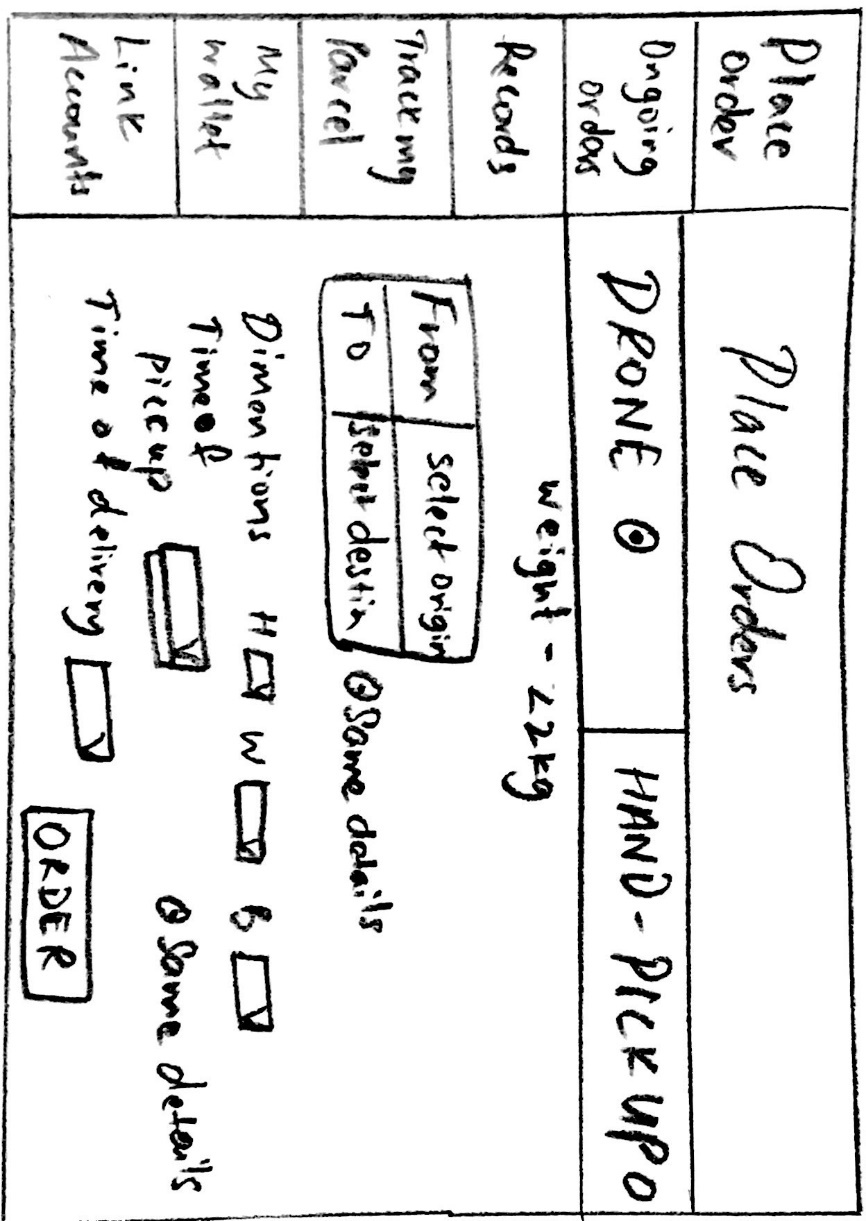 Place
order
Ongoing
orders
Records
Track my
Parcel
My
wallet
Link
Accounts
Place Orders
DRONE
HAND-PICK UP
weight - <2kg
From select origin
To select destin
Same details
Dimentions H W B
Time of
pick up
Same details
Time of delivery
ORDER